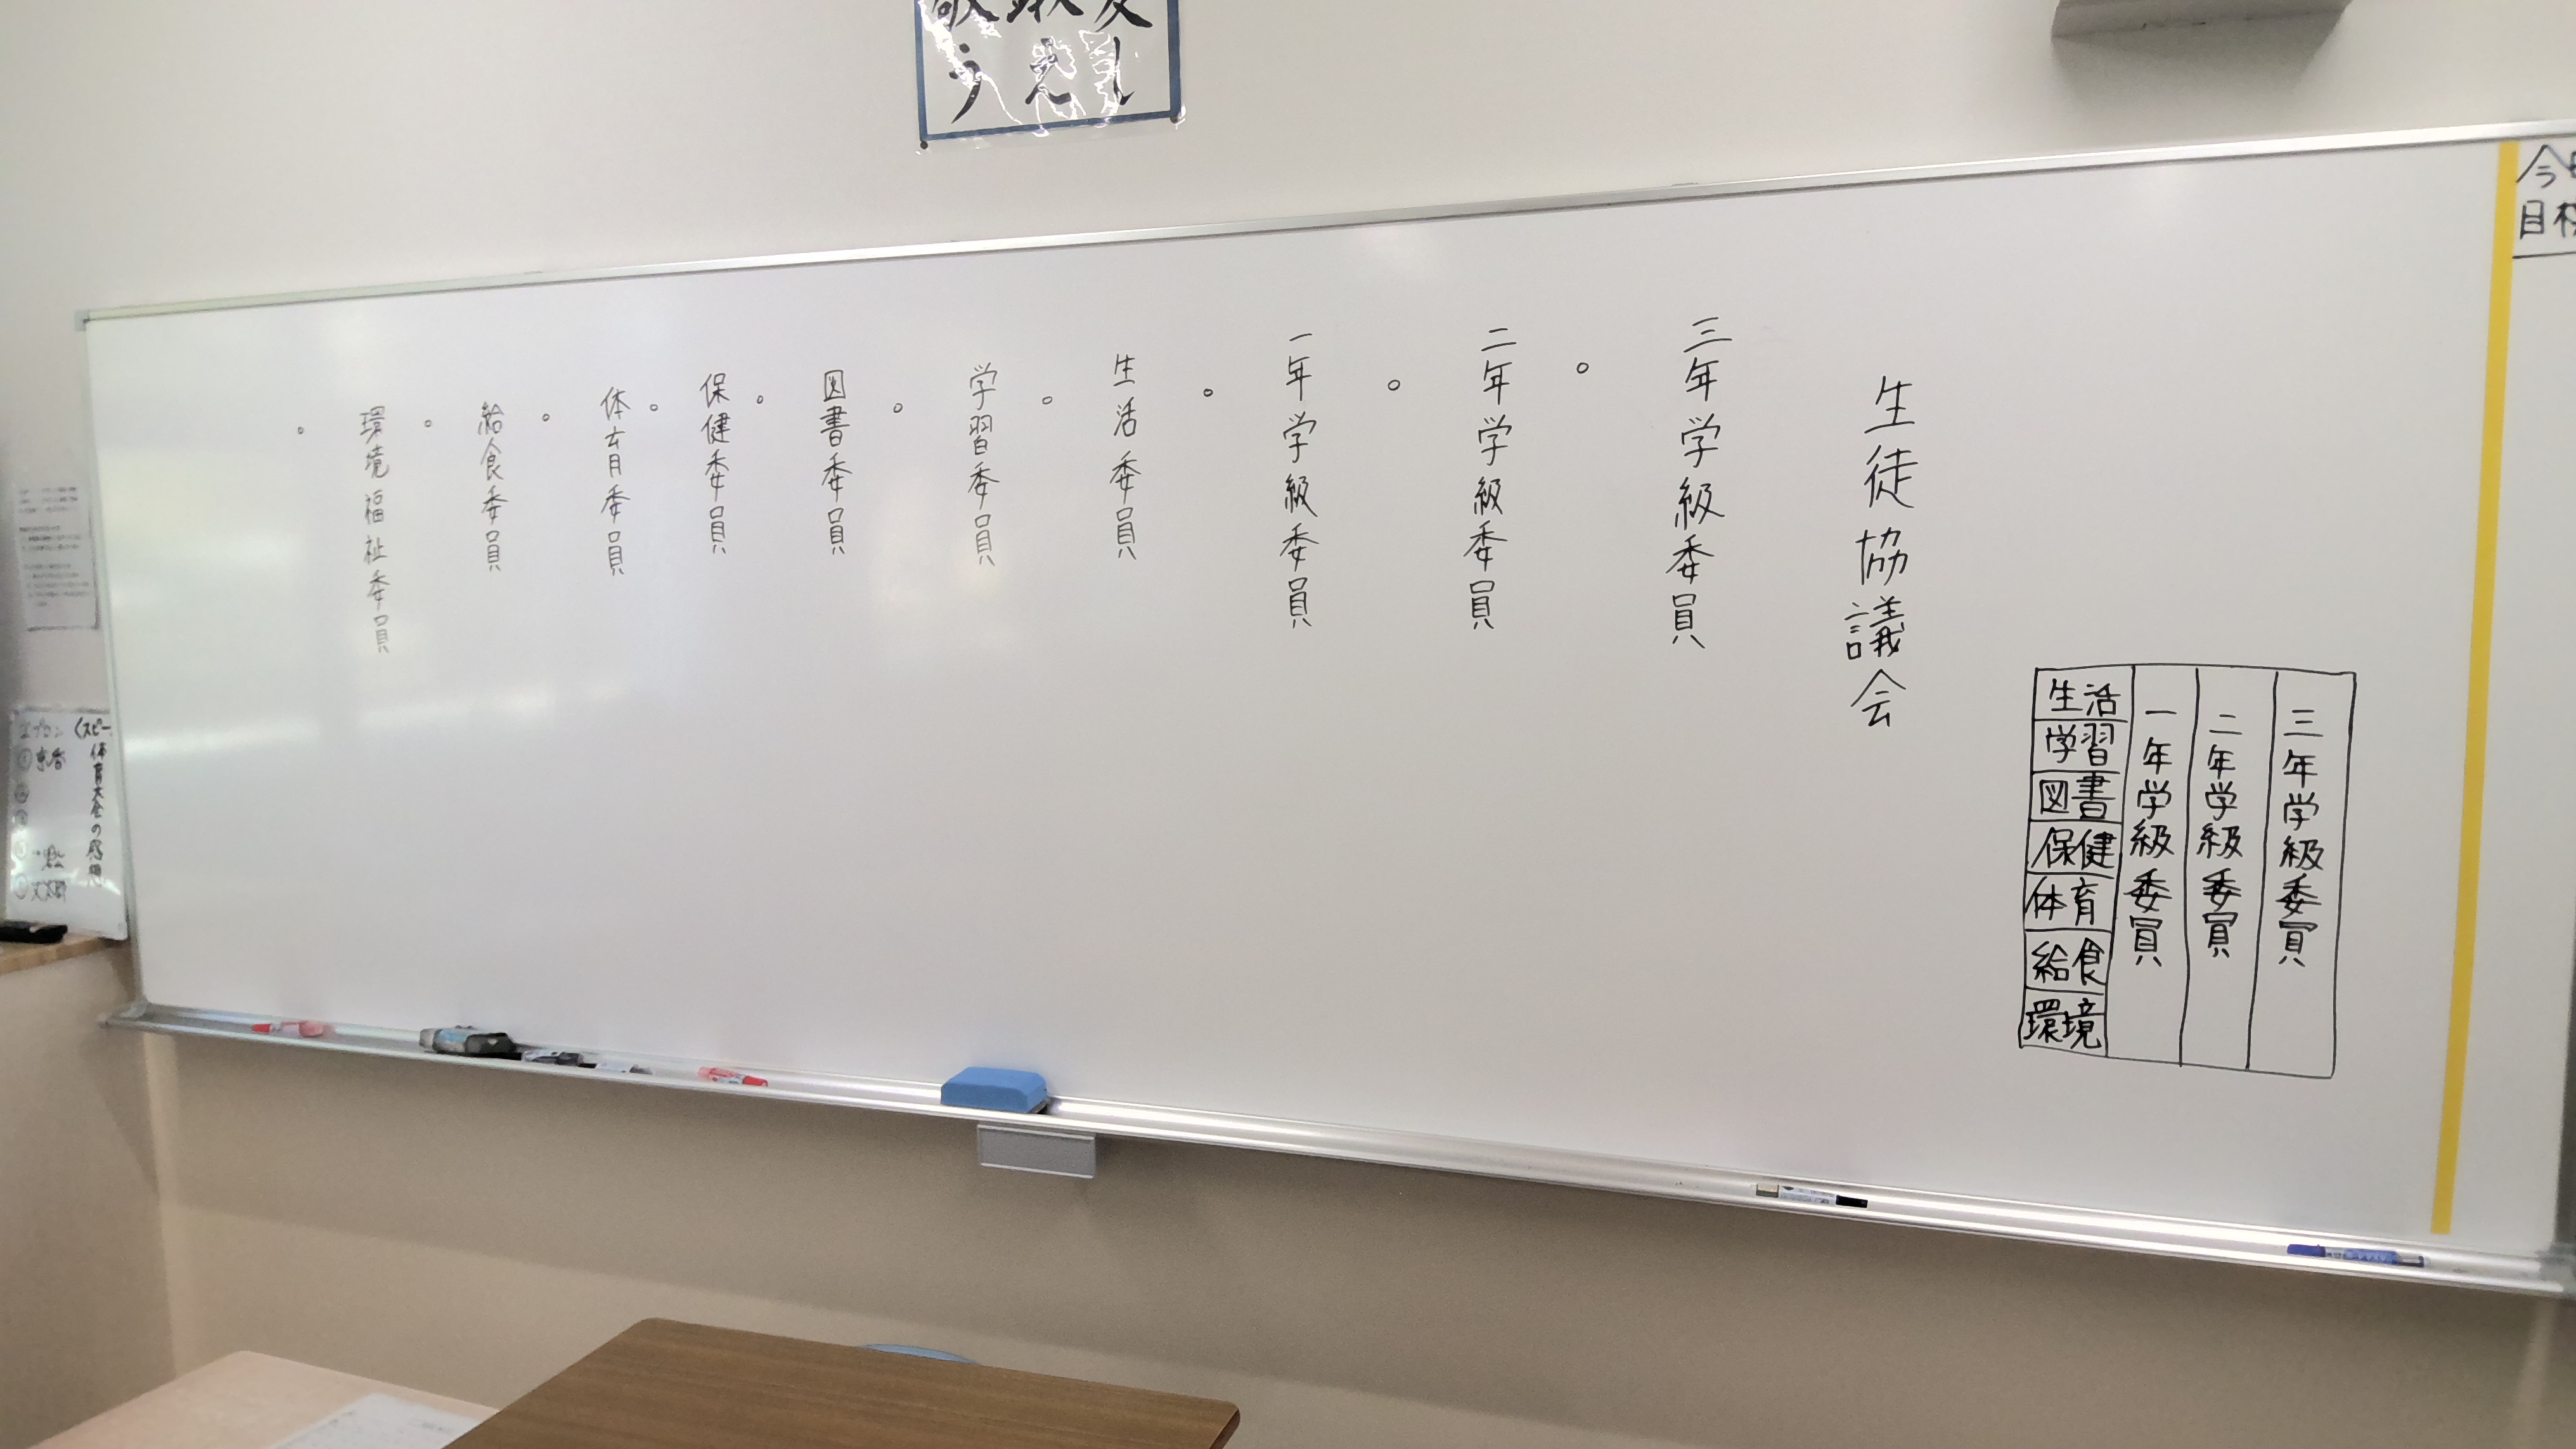 生徒協議会
三年学級委員
。
二年学級委員
。
一年学級委員
。
生活委員
。
学習委員
。
図書委員
。
保健委員
。
体育委員
。
給食委員
。
環境福祉委員
。
三年学級委員
二年学級委員
一年学級委員
生活
学習
図書
保健
体育
給食
環境
今
目標
う 見 し
〈スピー
体育大会の感想
エプロン